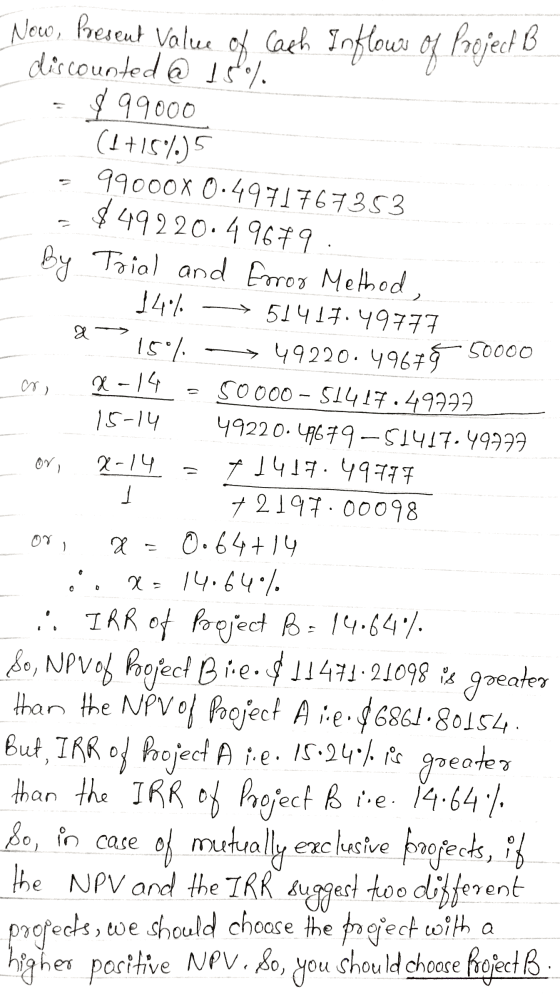 Now, Present Value of Cash Inflows of Project B
discounted @ 15%.
= $ 99000
(1+15%)5
= 99000x 0.4971767353
= $49220.49679.
By Trial and Error Method,
14% → 51417.49777
x →
15% → 49220.49679 ← 50000
or, x-14 = 50000-51417.49777
15-14 49220.49679-51417.49777
or, x-14 = +1417.49777
1 +2197.00098
or, x = 0.64+14
∴ x = 14.64%
∴ IRR of Project B = 14.64%.
So, NPV of Project B i.e. $ 11471.21098 is greater
than the NPV of Project A i.e. $6861.80154.
But, IRR of Project A i.e. 15.24% is greater
than the IRR of Project B i.e. 14.64%.
So, in case of mutually exclusive projects, if
the NPV and the IRR suggest two different
projects, we should choose the project with a
higher positive NPV. So, you should choose Project B.